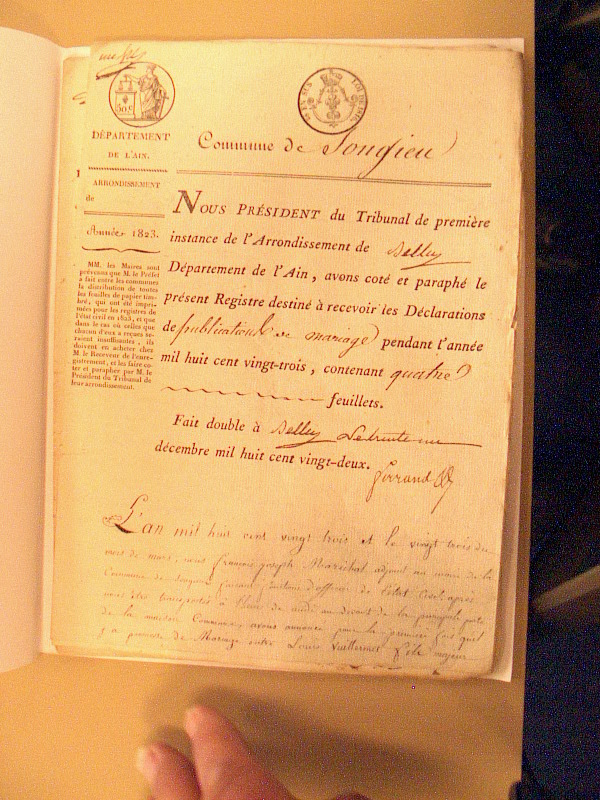 DÉPARTEMENT
DE L'AIN.
ARRONDISSEMENT
de
Année 1823.
MM. les Maires sont
prévenus que M. le Préfet
a fait entre les communes
la distribution de toutes
les feuilles de papier timbré,
qui ont été imprimées
pour les registres de
l'état civil en 1823, et que
dans le cas où celles que
chacun d'eux a reçues seraient
insuffisantes, ils
doivent en acheter chez
M. le Receveur de l'enregistrement,
et les faire coter
et parapher par M. le
Président du Tribunal de
leur arrondissement.
Commune de Songieu
NOUS PRÉSIDENT du Tribunal de première
instance de l'Arrondissement de Belley
Département de l'Ain, avons coté et paraphé le
présent Registre destiné à recevoir les Déclarations
de publications de mariage pendant l'année
mil huit cent vingt-trois, contenant quatre
feuillets.
Fait double à Belley le trente un
décembre mil huit cent vingt-deux.
L'an mil huit cent vingt trois et le vingt trois du
mois de mars, nous françois joseph Maréchal adjoint au maire de la
Commune de Songieu faisant fonctions d'officier de l'état Civil, après
nous être transportés à l'heure de midi au devant de la principale porte
de la maison Commune, avons annoncé pour la première fois qu'il
y a promesse de Mariage entre Louis Vuillermet fils majeur